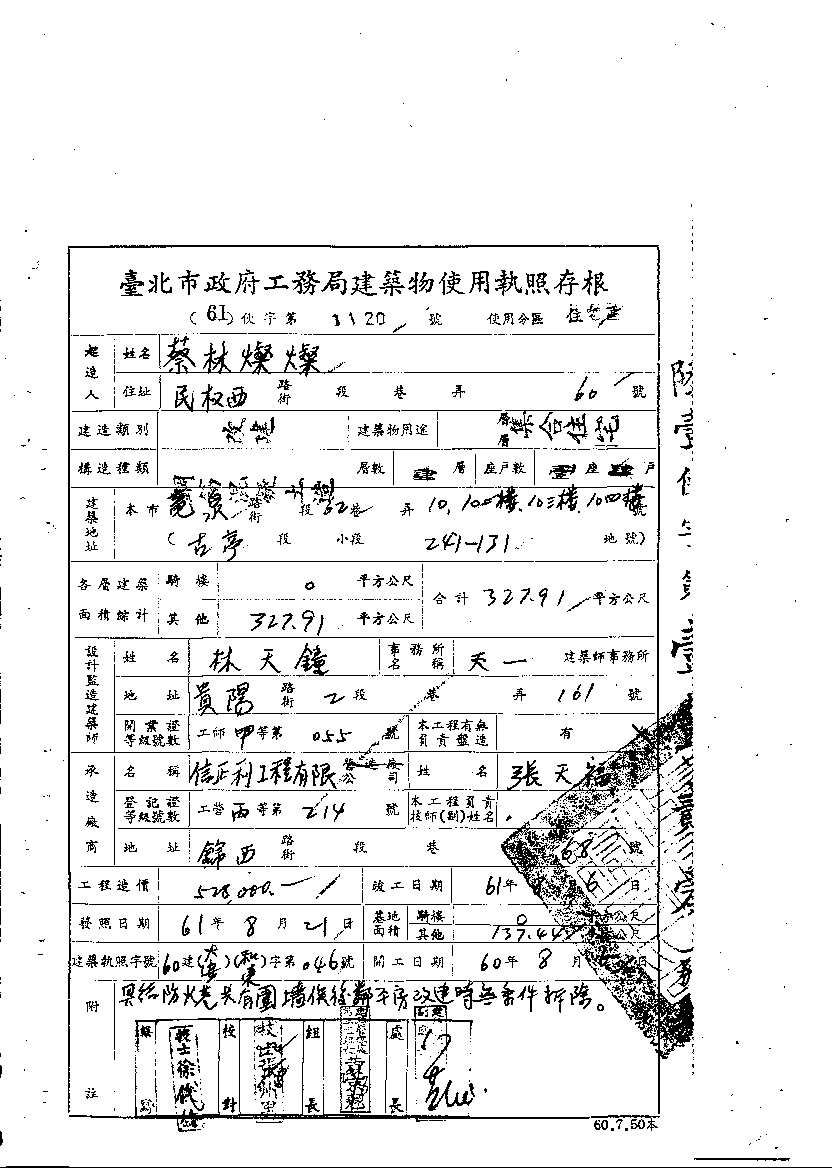 臺北市政府工務局建築物使用執照存根
(61)使字第 1120 號 使用分區 住
起造人 姓名 蔡林燦燦
住址 民权西 路街 段 巷 弄 60 號
建造類別 改建 建築物用途 層層 集合住宅
構造種類 層數 層 座戶數 座 戶
建築地址 本市 路街 段 62巷 弄 10, 10二樓, 10三樓, 10四樓 號
(古亭 段 小段 241-131 地號)
各層建築面積餘計 騎樓 0 平方公尺 合計 327.91 平方公尺
其他 327.91 平方公尺
設計監造建築師 姓名 林天鐘 事務所名稱 天一 建築師事務所
地址 貴陽 路街 2段 巷 弄 161 號
開業證等級號數 工師甲等第 055 號 本工程有無負責監造 有
承造廠商 名稱 信正利工程有限 營造公司 姓名 張天福
登記證等級號數 工營丙等第 214 號 本工程負責技師(副)姓名
地址 錦西 路街 段 巷 68 號
工程造價 528,000.— 竣工日期 61年 8月 6日
發照日期 61年 8月 21日 基地面積 騎樓 0 平方公尺
其他 137.44 平方公尺
建築執照字號 60建( )( )字第 046號 開工日期 60年 8月 日
附註 防火巷 圍墻俟後鄰平房改建時無条件拆除。
校對 組長 處長
技士徐
60.7.50本